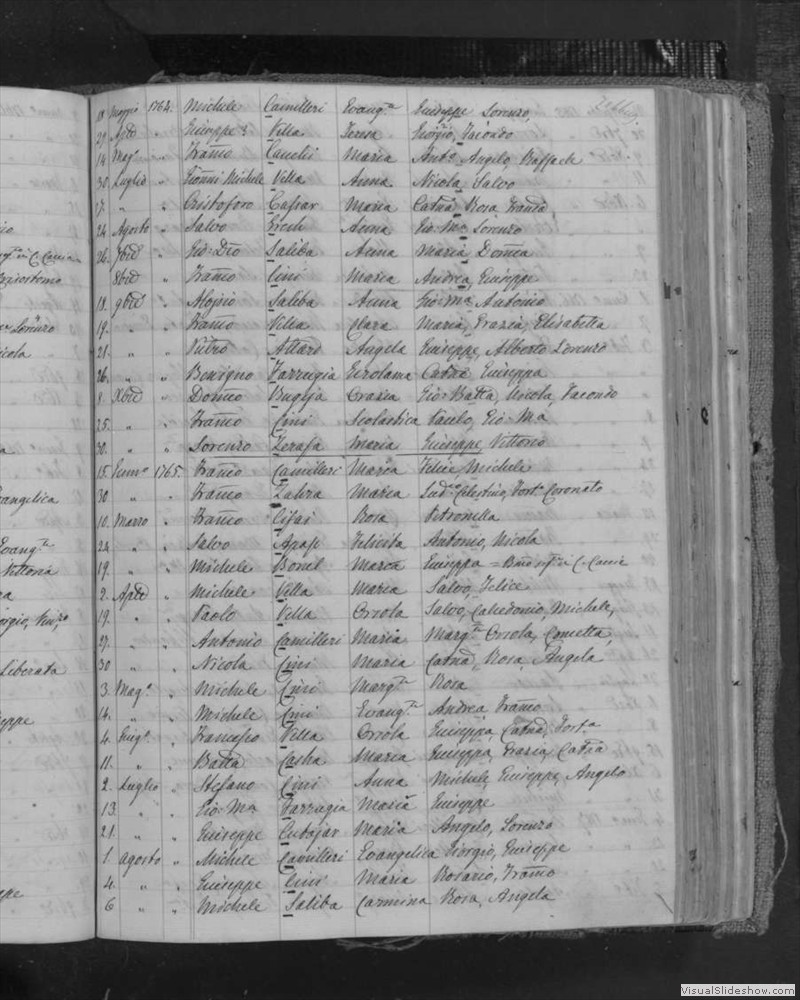 Zebbug
18 Maggio 1764. Michele Camilleri Evang.ta Giuseppe Lorenzo,
29 Aple " Giuseppe Vella Teresa Giorgio, Facondo
14 Mag.o " Franco Cauchi Maria Anto Angelo, Raffaele
30. Luglio " Gionni Michele Vella Anna Nicola, Salvo
17. " " Cristoforo Caspar Maria Catna Rosa Franca
24. Agosto " Salvo Grech Anna Gio: Ma Lorenzo
26. 7bre " Gio: Dro Saliba Anna Maria Domca
8bre " Franco Cini Maria Andrea, Giuseppe
18. 9bre " Alojsio Saliba Anna Gio: Ma, Antonio
19. " " Franco Vella Clara Maria, Grazia, Elisabetta
21. " " Pietro Attard Angela Giuseppe, Alberto Lorenzo
26. " " Benigno Farrugia Girolama Catna Giuseppa
8. Xbre " Domco Bugeja Grazia Gio: Batta, Nicola, Facondo
25. " " Franco Cini Scolastica Paulo, Gio: Ma
30. " " Lorenzo Zerafa Maria Giuseppe Vittorio
15. Genn.o 1765. Franco Camilleri Maria Felice Michele
30 " " Franco Zahra Maria Celestino, Fort.o Coronato
10. Marzo " Franco Cifai Rosa Petronilla
24. " " Salvo Apap Felicita Antonio, Nicola
19. " " Michele Bonel Maria Giuseppa
2. Aple " Michele Vella Maria Salvo, Felice
19. " " Paolo Vella Orsola Salvo, Calcedonio, Michele,
27. " " Antonio Camilleri Maria Marg.ta Orsola, Cometta,
30 " " Nicola Cini Maria Catna, Rosa, Angela
3. Mag.o " Michele Cini Marg.ta Rosa
14. " " Michele Cini Evang.ta Andrea Franco
4. Giug.o " Francesco Vella Orsola Giuseppa Catna, Fort.a
11. " " Batta Casha Maria Giuseppa, Grazia, Catna
2. Luglio " Stefano Cini Anna Michele, Giuseppe, Angelo
13. " " Gio: Ma Farrugia Maria Giuseppe
21. " " Giuseppe Cutajar Maria Angelo, Lorenzo
1. Agosto " Michele Camilleri Evangelica Giorgio, Giuseppe
4. " " Giuseppe Cini Maria Rosario, Franco
6 " " Michele Saliba Carmina Rosa, Angela
VisualSlideshow.com